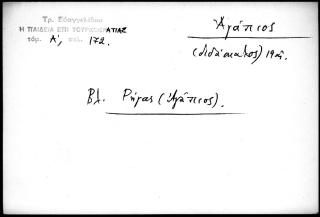 Τρ. Εὐαγγελίδου
Η ΠΑΙΔΕΙΑ ΕΠΙ ΤΟΥΡΚΟΚΡΑΤΙΑΣ
τόμ. Α', σελ. 172.
Ἀγάπιος
(διδάσκαλος) 19ος.
Βλ. Ρήγας (Ἀγάπιος).